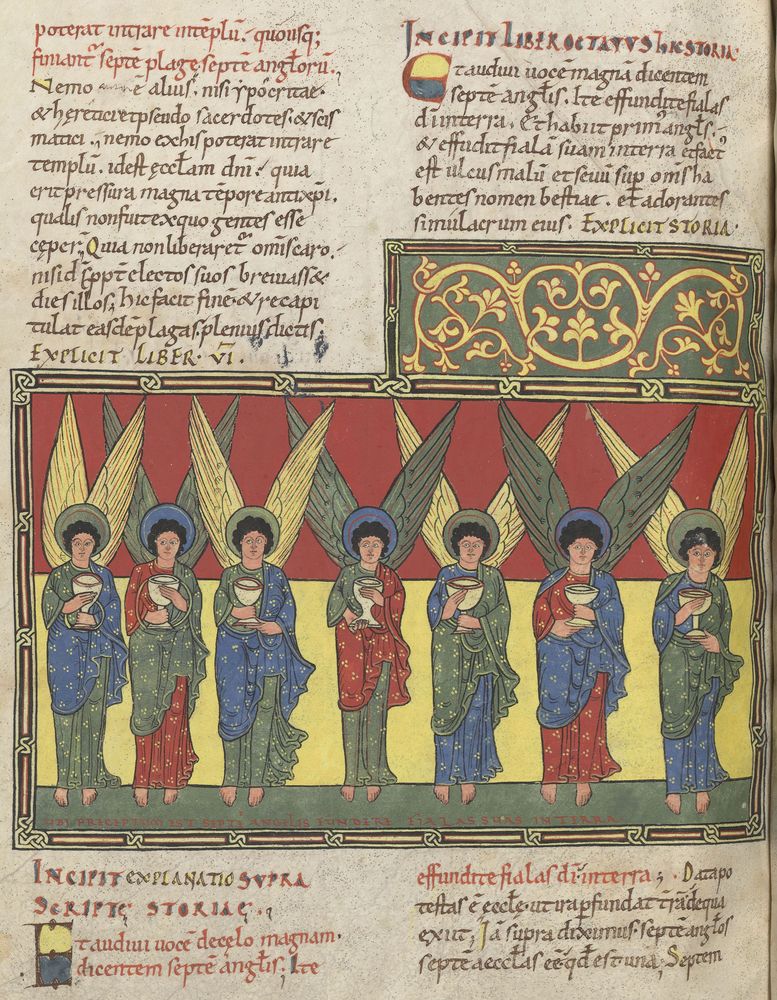 poterat intrare intēplū. quousq;
finiant᷑ septē plagę septē angłorū.
Nemo ē alius. nisi ypocritae.
& hęretici et pseudo sacerdotes. & scis
matici. nemo ex his poterat intrare
templū. id est ęcclam dn̄i. quia
erit pressura magna tēpore antixp̄i.
qualis non fuit ex quo gentes esse
cęper̄. Quia non liberaret᷑ om̄is caro.
nisi d̄s pp̄t electos suos breviass&
dies illos; hic facit finē & recapi
tulat easdē plagas. plenius dictis.
EXPLICIT LIBER VII.
INCIPIT LIBER OCTAVUS hISTORIA
Et audivi vocē magnā dicentem
septē angłis. Ite effundite fialas
dī in terra. Et habiit prim᷒ angłs.
& effudit fialā suam in terra et fact᷒
est ulcus malū et sevū sup om̄s ha
bentes nomen bestiae. et adorantes
simulacrum eius. EXPLICIT STORIA.
UBI PRECEPTUM EST SEPTĒ ANGELIS FUNDERE FIALAS SUAS IN TERRA
INCIPIT EXPLANATIO SUPRA
SCRIPTĘ STORIAE.
Et audivi vocē de cęlo magnam.
dicentem septē angłis; Ite
effundite fialas dī in terra; Data po
testas ē eccłe. ut ira pfundat t̄rā de qua
exiit; Iā supra diximus. septē angłos
septē aecclas eē. qđ est una; Septem